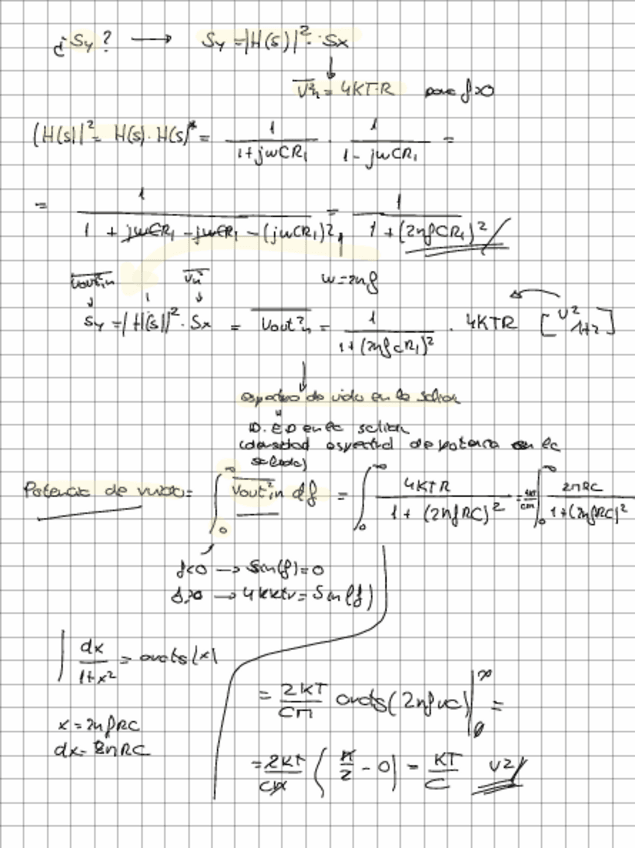 ¿Sy? → Sy = |H(s)|² · Sx
↓
V²n = 4KT·R para f>0
|H(s)|² = H(s)·H(s)* = 1/(1+jwCR₁) · 1/(1-jwCR₁) =
= 1/(1 + jwCR₁ - jwCR₁ - (jwCR₁)²) = 1/(1+(2πfCR₁)²)
Vout²n Vn² w=2πf
↓ ↓
Sy = |H(s)|² · Sx = Vout²n = 1/(1+(2πfCR₁)²) · 4KTR [V²/Hz]
↓
espectro de ruido en la salida
↓
D.E.D en la salida
(densidad espectral de potencia en la
salida)
Potencia de ruido = ∫₀^∞ Vout²n df = ∫₀^∞ 4KTR/(1+(2πfRC)²) = ∫₀^∞ 2πRC/(1+(2πfRC)²
f<0 → Sn(f)=0
f>0 → = Sn(f)
∫ dx/(1+x²) = arctg(x)
x = 2πfRC
dx = 2πRC
= 2KT/Cπ arctg(2πfRC)|₀^∞ =
= 2KT/Cπ (π/2 - 0) = KT/C V²